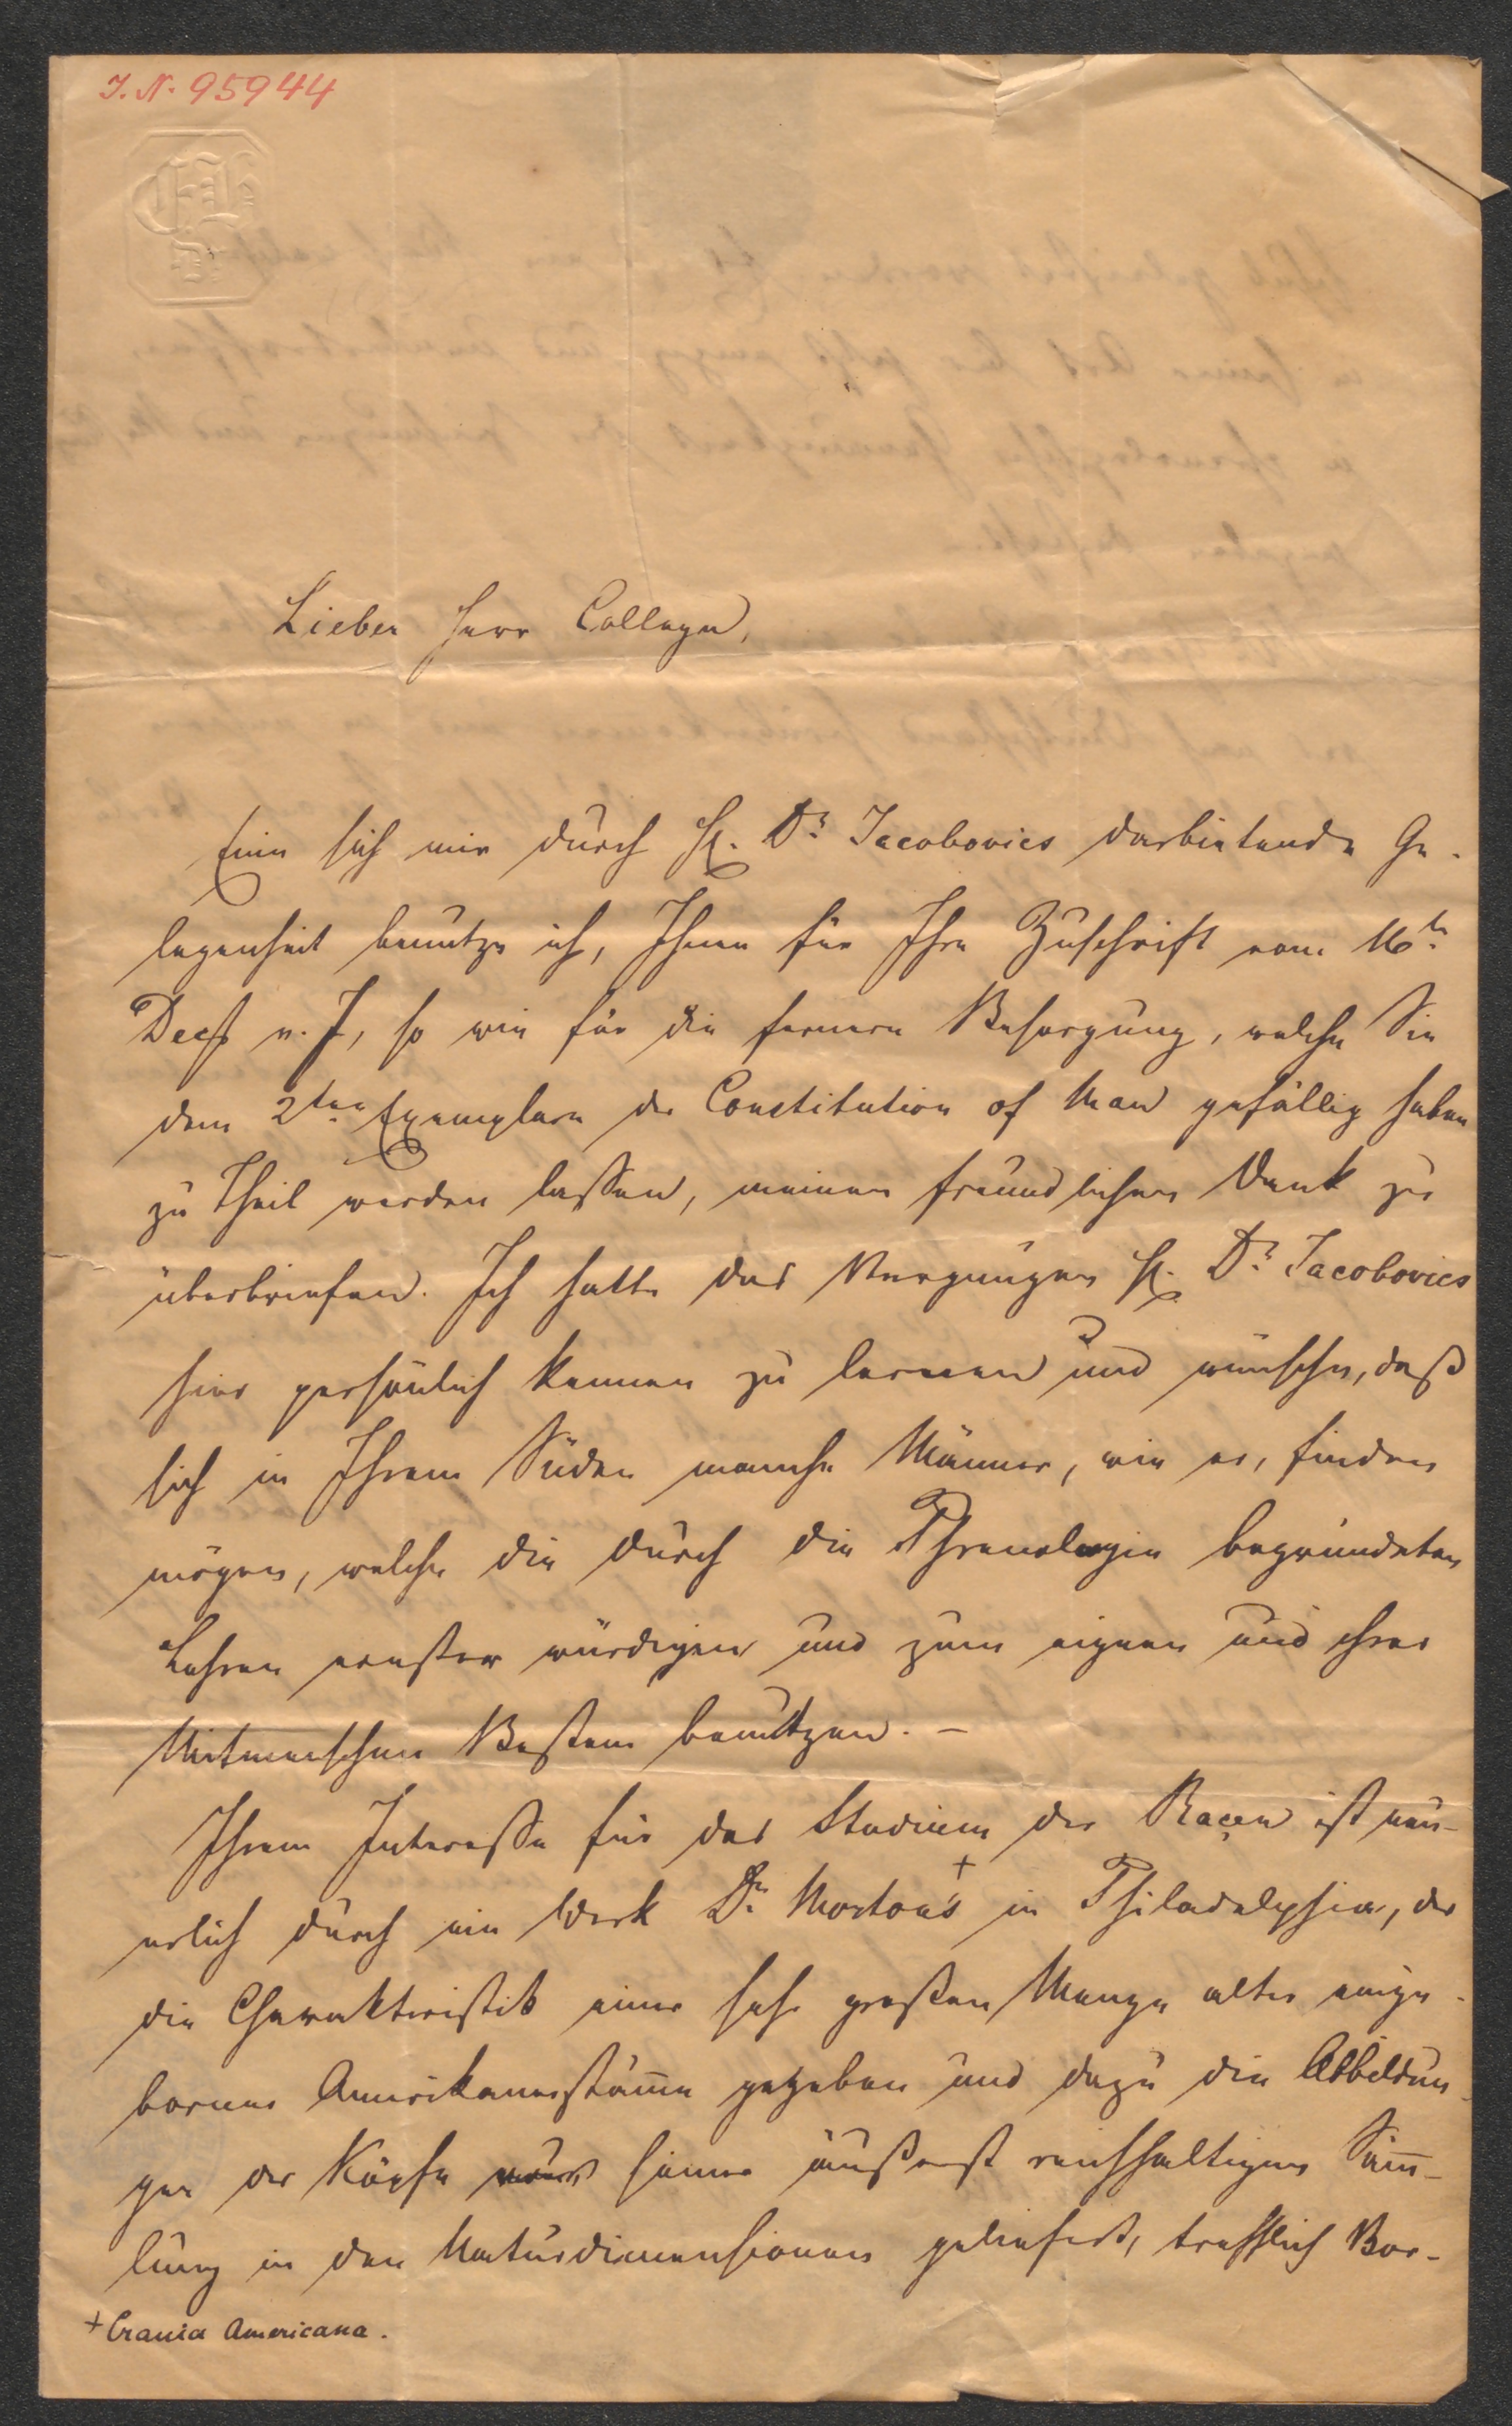 I. N. 95944
Lieber Herr College,
Eine sich mir durch H. Dr Jacobovics darbietende Ge-
legenheit benutze ich, Ihnen für Ihre Zuschrift vom 16tn
Decb v. J, so wie für die fernere Besorgung, welche Sie
dem 2ten Exemplare der Constitution of Man gefällig haben
zu Theil werden lassen, meinen freundlichen Dank zu
überbriefen. Ich hatte das Vergnügen H. Dr Jacobovics
hier persönlich kennen zu lernen und wünsche, daß
sich in Ihrem Süden manche Männer, wie er, finden
mögen, welche die durch die Phrenologie begründeten
Lehren ernster würdigen und zum eignen und ihrer
Mitmenschen Besten benützen. –
Ihrem Interesse für das Studium der Raçen ist neu-
erlich durch ein Werk Dr. Morton's + in Philadelphia, der
die Charakteristik einer sehr großen Menge alter einge-
borner Amerikanerstäm̅e gegeben und dazu die Abbildun-
gen der Köpfe seiner äußerst reichhaltigen Sam̅-
lung in den Naturdimensionen geliefert, trefflich Vor-
+ Crania Americana.